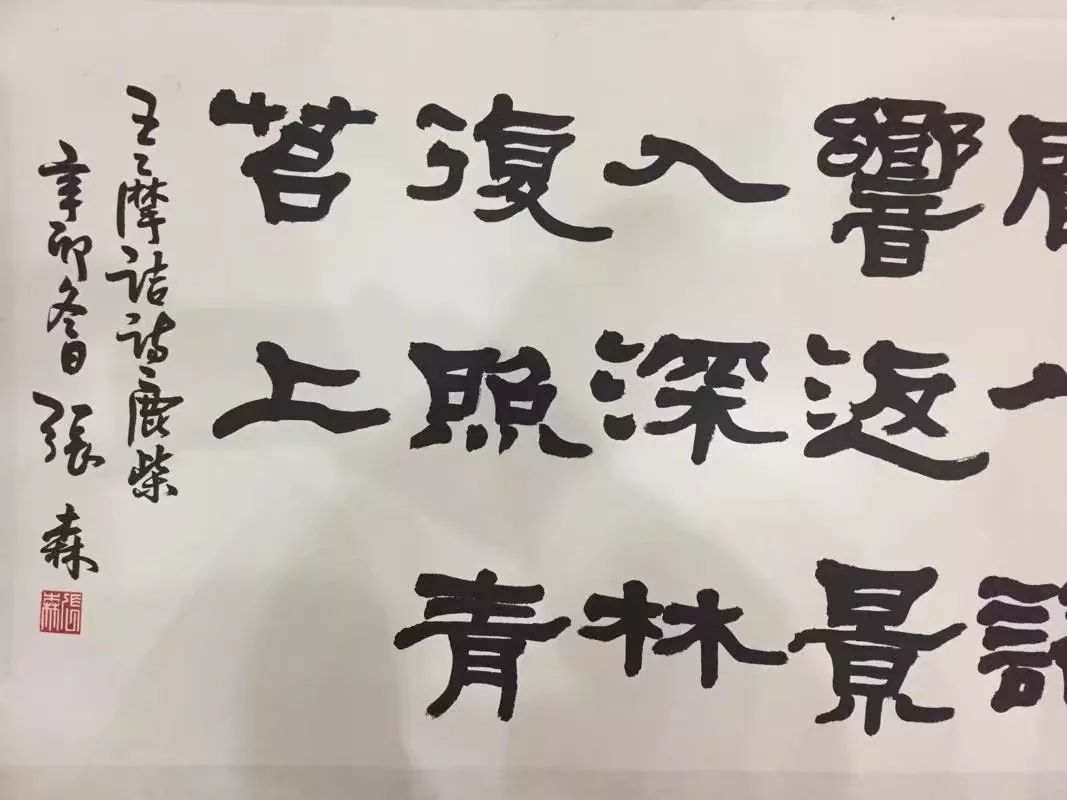 響返景
入深林
復照青
苔上
王摩詰詩鹿柴
辛卯冬日張森
張森